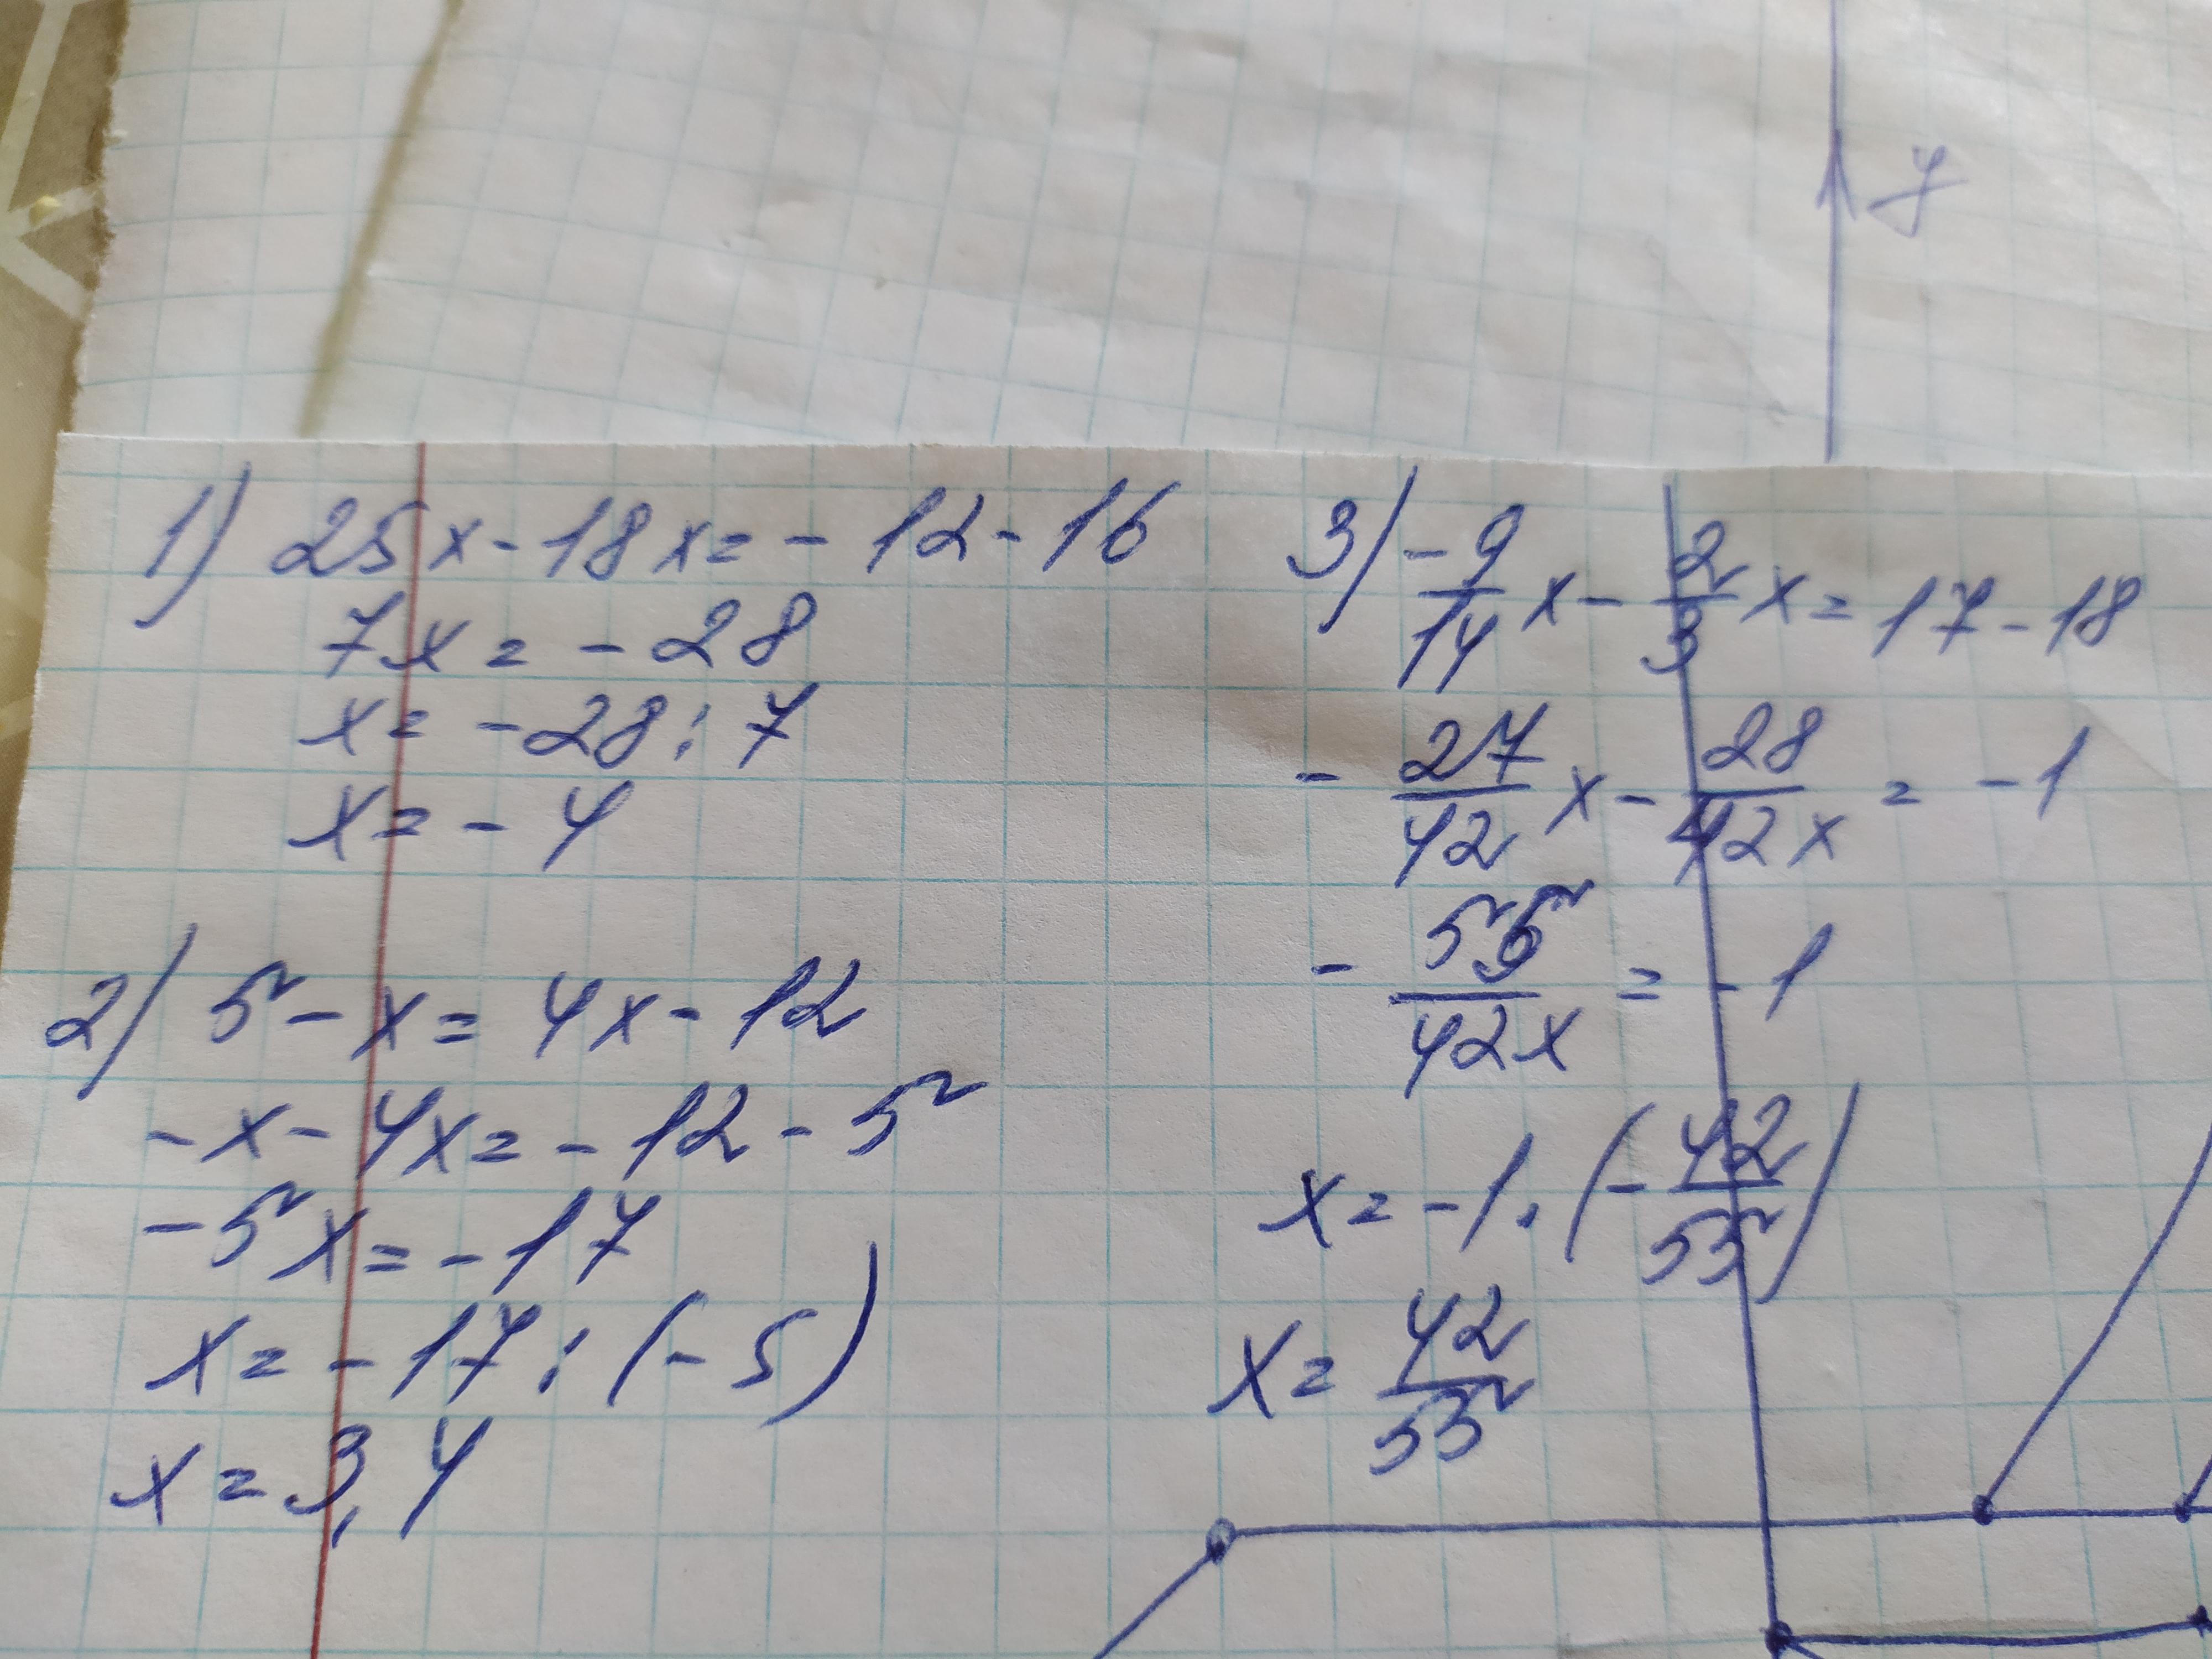 y
1) 25x - 18x = - 12 - 16
7x = - 28
x = - 28 : 7
x = - 4
2) 5 - x = 4x - 12
- x - 4x = - 12 - 5
- 5x = - 17
x = - 17 : (- 5)
x = 3,4
3) - 9/14 x - 2/3 x = 17 - 18
- 27/42 x - 28/42x = - 1
- 55/42x = - 1
x = - 1 · (- 42/55)
x = 42/55